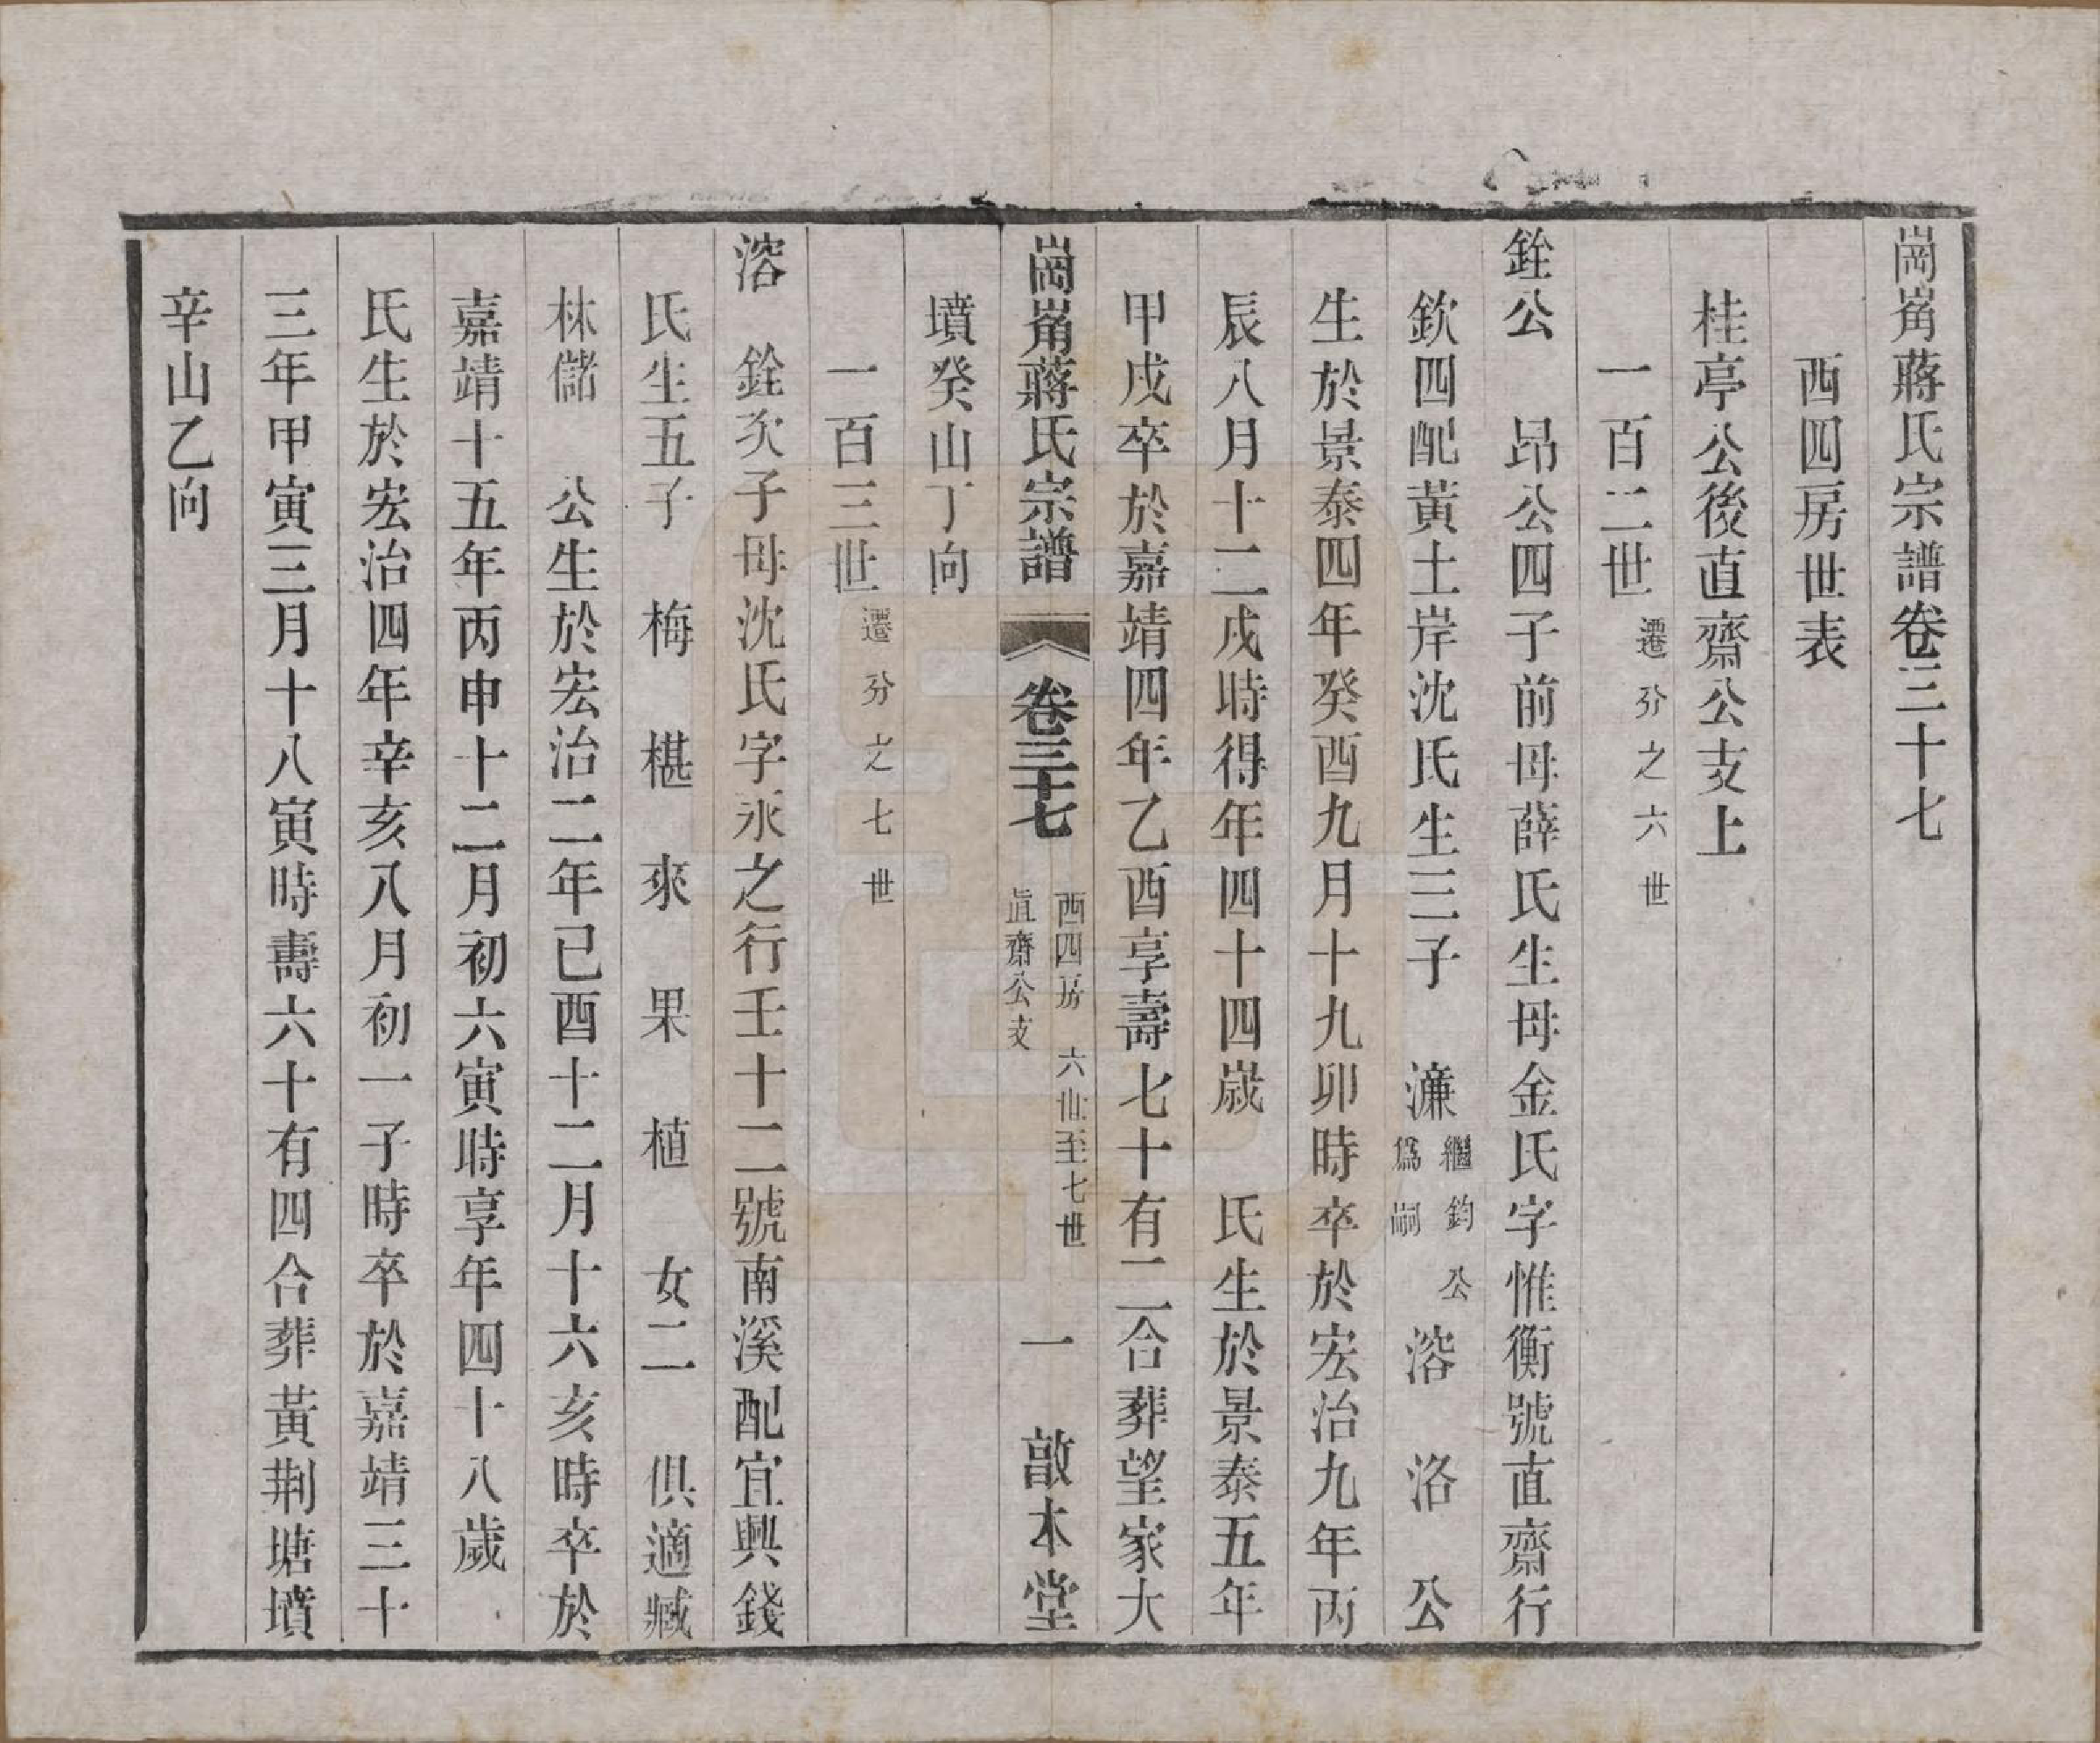 崗嶌蔣氏宗譜卷三十七
西四房世表
桂亭公後直齋公支上
一百二世 遷分之六世
銓公 昂公四子前母薛氏生母金氏字惟衡號直齋行
欽四配黃土岸沈氏生三子 濂 繼鈞公爲嗣 溶 洛 公
生於景泰四年癸酉九月十九卯時卒於宏治九年丙
辰八月十二戌時得年四十四歲 氏生於景泰五年
甲戌卒於嘉靖四年乙酉享壽七十有二合葬望家大
崗嶌蔣氏宗譜 卷三十七 西四房 六世至七世 直齋公支 一 敨本堂
墳癸山丁向
一百三世 遷分之七世
溶 銓次子母沈氏字永之行壬十二號南溪配宜興錢
氏生五子 梅 椹 來 果 植 女二 俱適臧
林儲 公生於宏治二年己酉十二月十六亥時卒於
嘉靖十五年丙申十二月初六寅時享年四十八歲
氏生於宏治四年辛亥八月初一子時卒於嘉靖三十
三年甲寅三月十八寅時壽六十有四合葬黃荆塘墳
辛山乙向